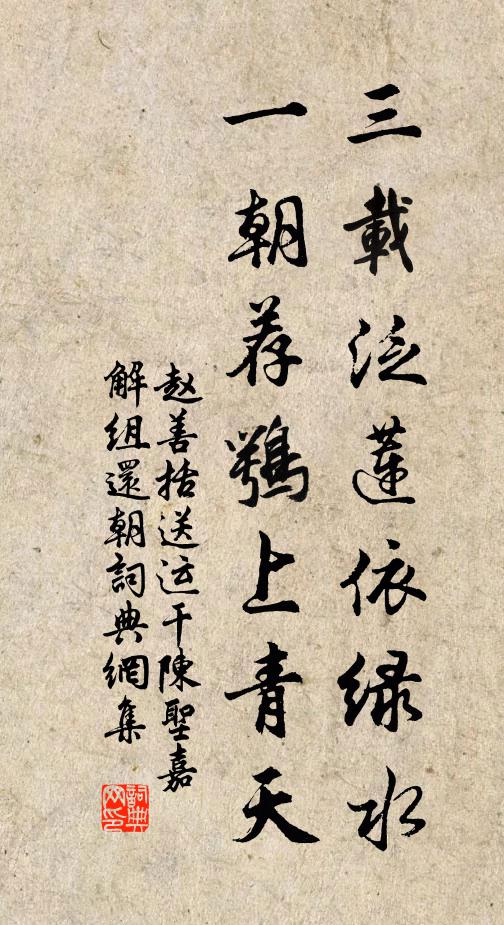 三載泛蓮依緑水
一朝荐鶚上青天
赵善括送运干陳聖嘉
解组還朝詞典網集
詞典
网印